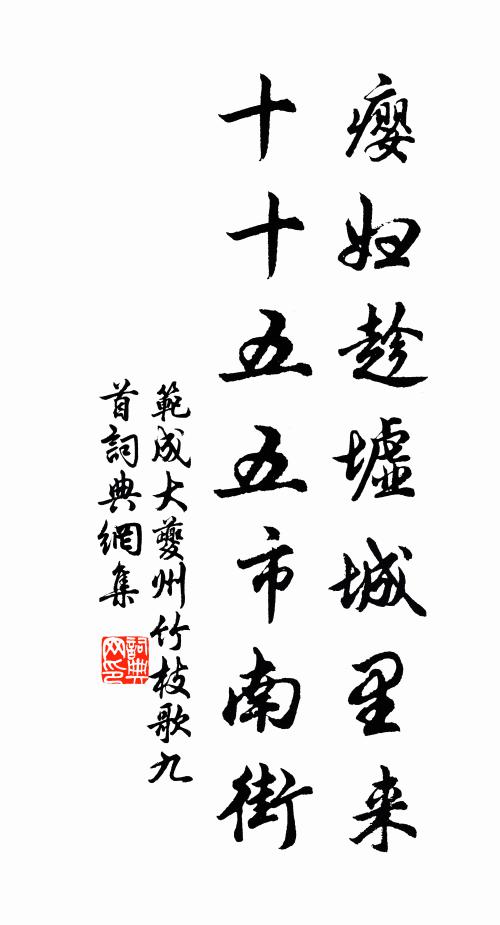 癭妇趁墟城里来
十十五五市南街
範成大夔州竹枝歌九
首詞典網集
詞典网印